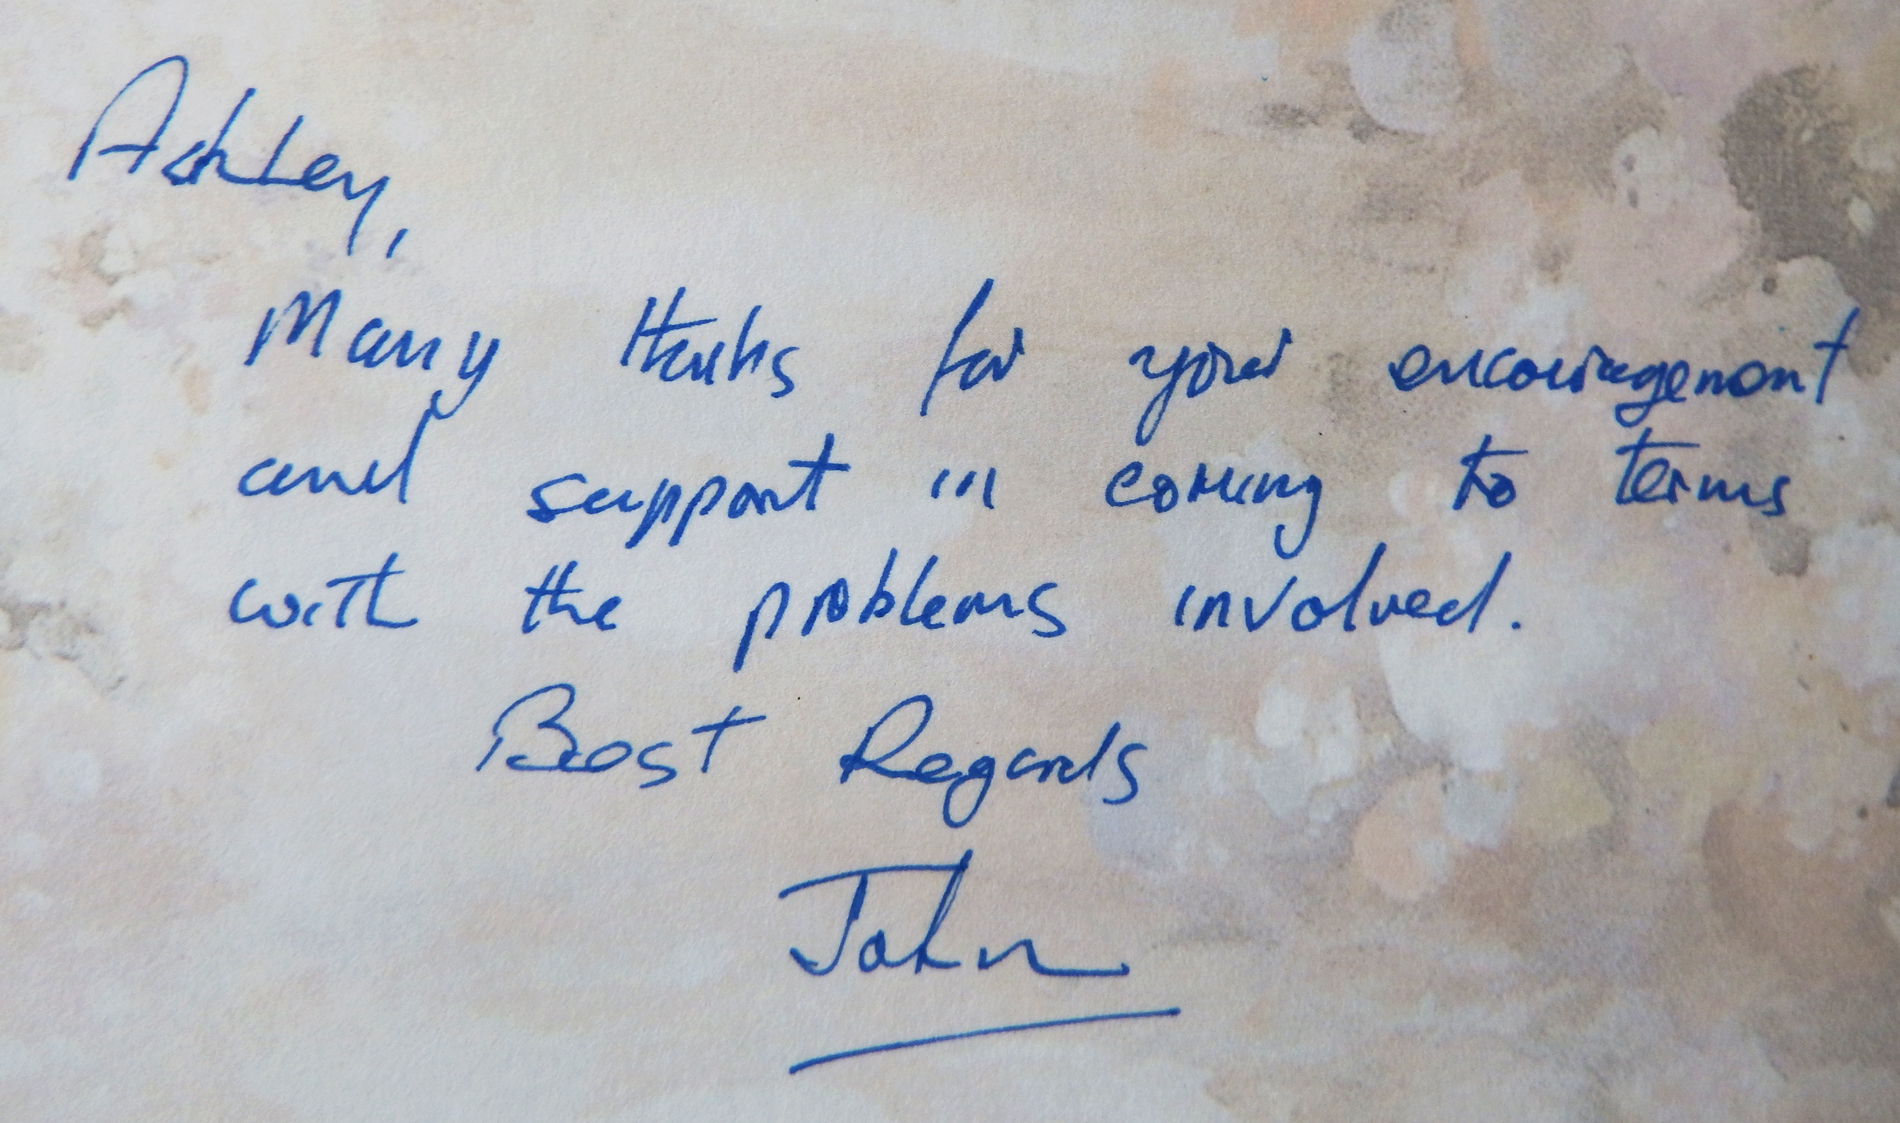 Ashley,
Many thanks for your encouragement
and support in coming to terms
with the problems involved.
Best Regards
John